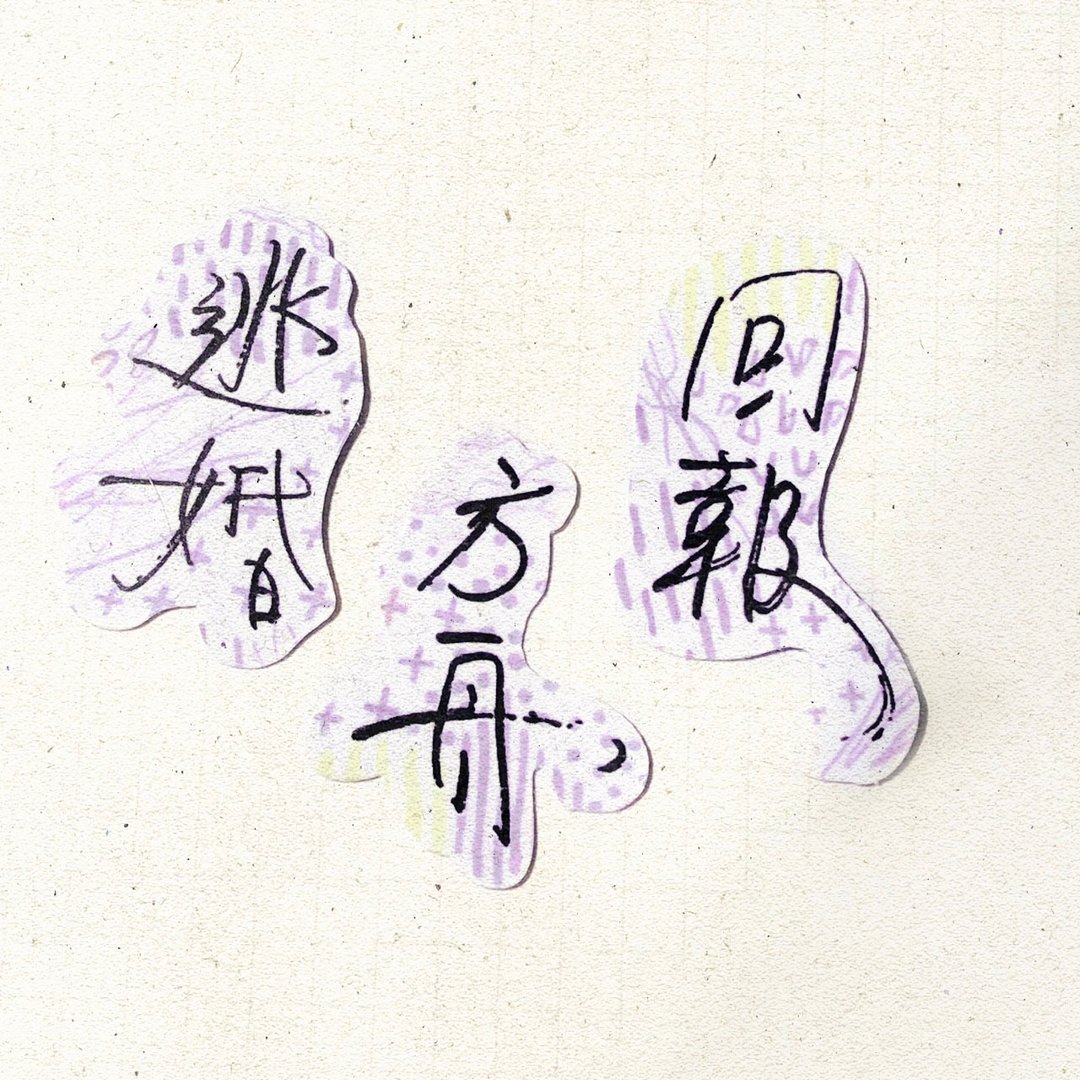 逃婚
方舟
回報